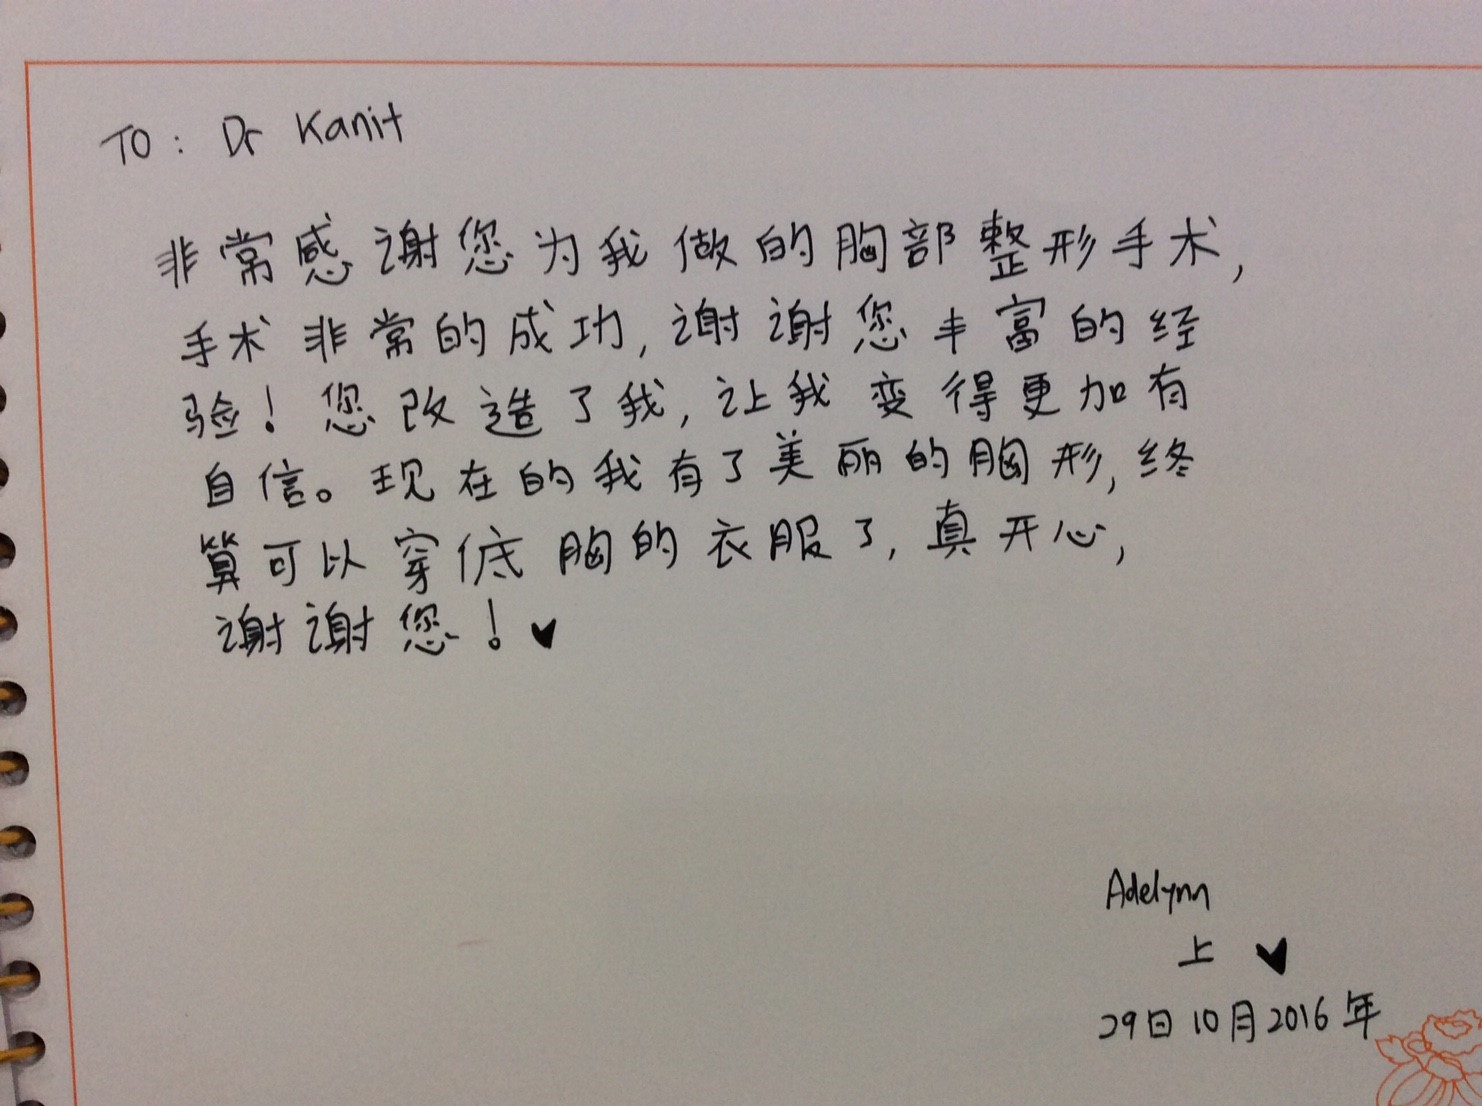 TO: Dr Kanit
非常感谢您为我做的胸部整形手术,
手术非常的成功,谢谢您丰富的经
验!您改造了我,让我变得更加有
自信。现在的我有了美丽的胸形,终
算可以穿低胸的衣服了,真开心,
谢谢您!♥
Adelynn
上 ♥
29日10月2016年